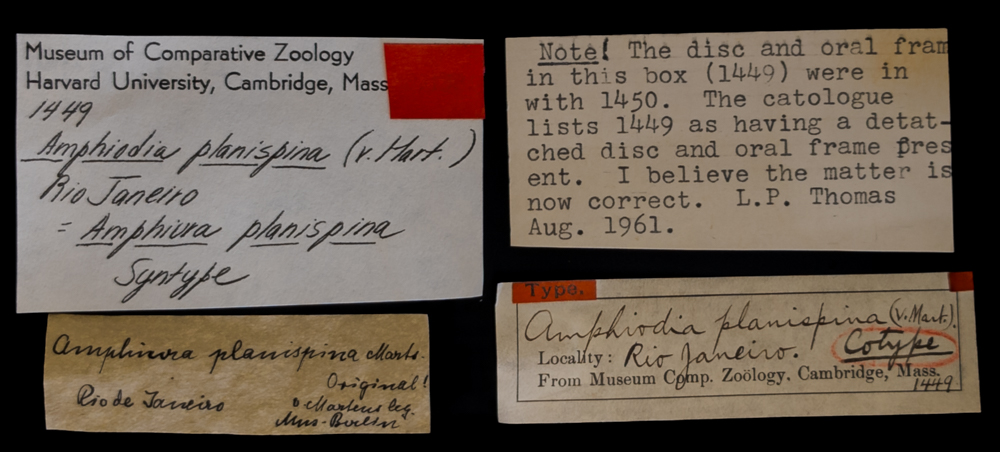 Museum of Comparative Zoology
Harvard University, Cambridge, Mass
1449
Amphiodia planispina (v. Mart.)
Rio Janeiro
= Amphiura planispina
Syntype
Note! The disc and oral fram
in this box (1449) were in
with 1450. The catologue
lists 1449 as having a detat-
ched disc and oral frame pres
ent. I believe the matter is
now correct. L.P. Thomas
Aug. 1961.
Amphiura planispina Marts.
Original!
Rio de Janeiro
v Martens leg.
Mus-Berlin
Type.
Amphiodia planispina (v. Mart.).
Locality: Rio Janeiro. Cotype
From Museum Comp. Zoölogy, Cambridge, Mass.
1449